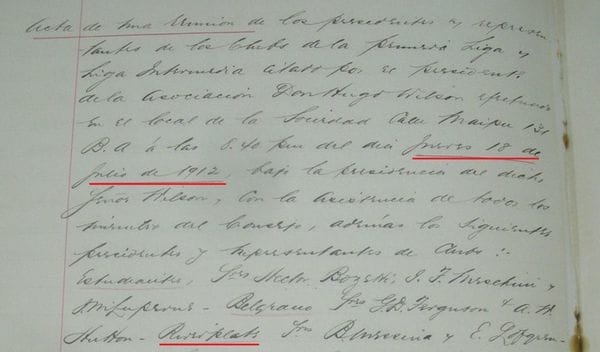 Acta de una reunion de los presidentes y represen
tantes de los Clubs de la primera Liga y
Liga Intermedia citado por el presidente
de la Asociación Don Hugo Wilson efectuada
en el local de la Sociedad Calle Maipu 131
B.A á las 8.40 pm del dia Jueves 18 de
Julio de 1912, bajo la presidencia del dicho
Señor Wilson, con la asistencia de todos los
miembro del Consejo, además los siguientes
presidentes y representantes de Clubs :-
Estudiantes, Sres Hector Bozetti, J. F.
Belgrano Sres G.D. Ferguson & A. H.
Hutton - River plate Sres B. Messina y E.